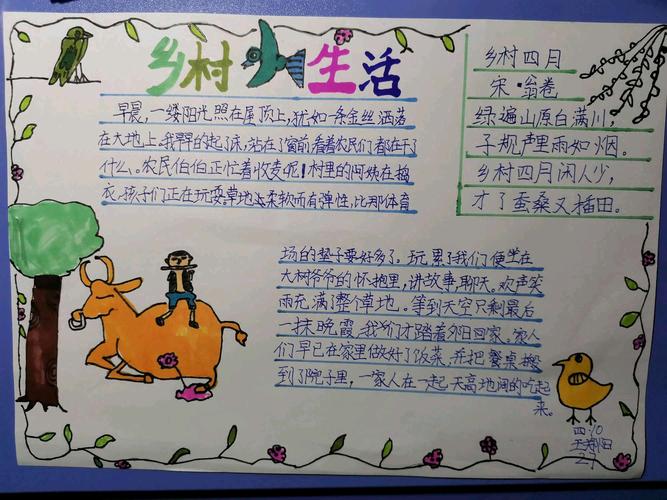 乡村生活
早晨，一缕阳光照在屋顶上，犹如一条金丝洒落
在大地上。我早早的起了床，站在了窗前看着农民们都在干了
什么。农民伯伯正忙着收麦呢！村里的阿姨在摘
衣，孩子们正在玩耍。草地上柔软而有弹性，比那体育
场的垫子要好多了。玩累了我们便坐在
大树爷爷的怀抱里，讲故事，聊天。欢声笑
雨充满了整个草地。等到天空只剩最后
一抹晚霞，我们才踏着夕阳回家。家人
们早已在家里做好了饭菜，并把餐桌搬
到了院子里，一家人在一起天高地阔的吃起
来。
乡村四月
宋·翁卷
绿遍山原白满川，
子规声里雨如烟。
乡村四月闲人少，
才了蚕桑又插田。
四.10
27